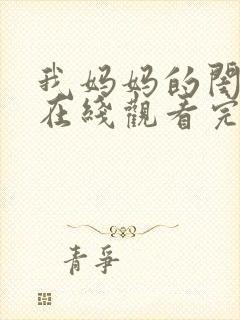 我妈妈的闺
在綫觀看完
青爭